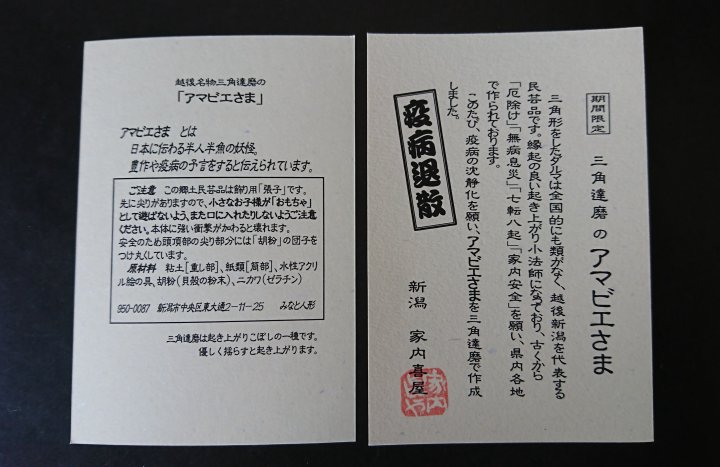 越後名物三角達磨の
「アマビエさま」
アマビエさま とは
日本に伝わる半人半魚の妖怪。
豊作や疫病の予言をすると伝えられています。
ご注意 この郷土民芸品は飾り用「張子」です。
先に尖りがありますので、小さなお子様が「おもちゃ」
として遊ばないよう、また口に入れたりしないようご注意
ください。本体に強い衝撃が加わると壊れます。
安全のため頭頂部の尖り部分には「胡粉」の団子を
つけ丸くしています。
原材料 粘土[重し部]、紙類[筒部]、水性アクリ
ル絵の具、胡粉(貝殻の粉末)、ニカワ(ゼラチン)
950-0087 新潟市中央区東大通2-11-25 みなと人形
三角達磨は起き上がりこぼしの一種です。
優しく揺らすと起き上がります。
期間限定
三角達磨のアマビエさま
三角形をしたダルマは全国的にも類がなく、越後新潟を代表する
民芸品です。縁起の良い起き上がり小法師になっており、古くから
「厄除け」「無病息災」「七転八起」「家内安全」を願い、県内各地
で作られております。
このたび、疫病の沈静化を願い、アマビエさまを三角達磨で作成
しました。
疫病退散
新潟 家内喜屋